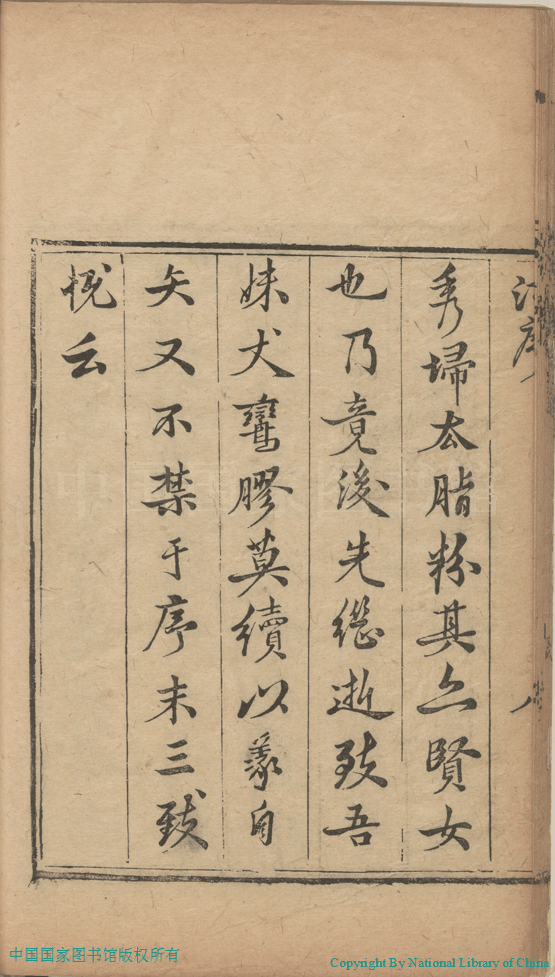 秀埽去脂粉其亦賢女
也乃竟後先繼逝致吾
妹丈鸞膠莫續以義自
矢又不禁于序末三致
慨云
中国国家图书馆版权所有
Copyright By National Library of China